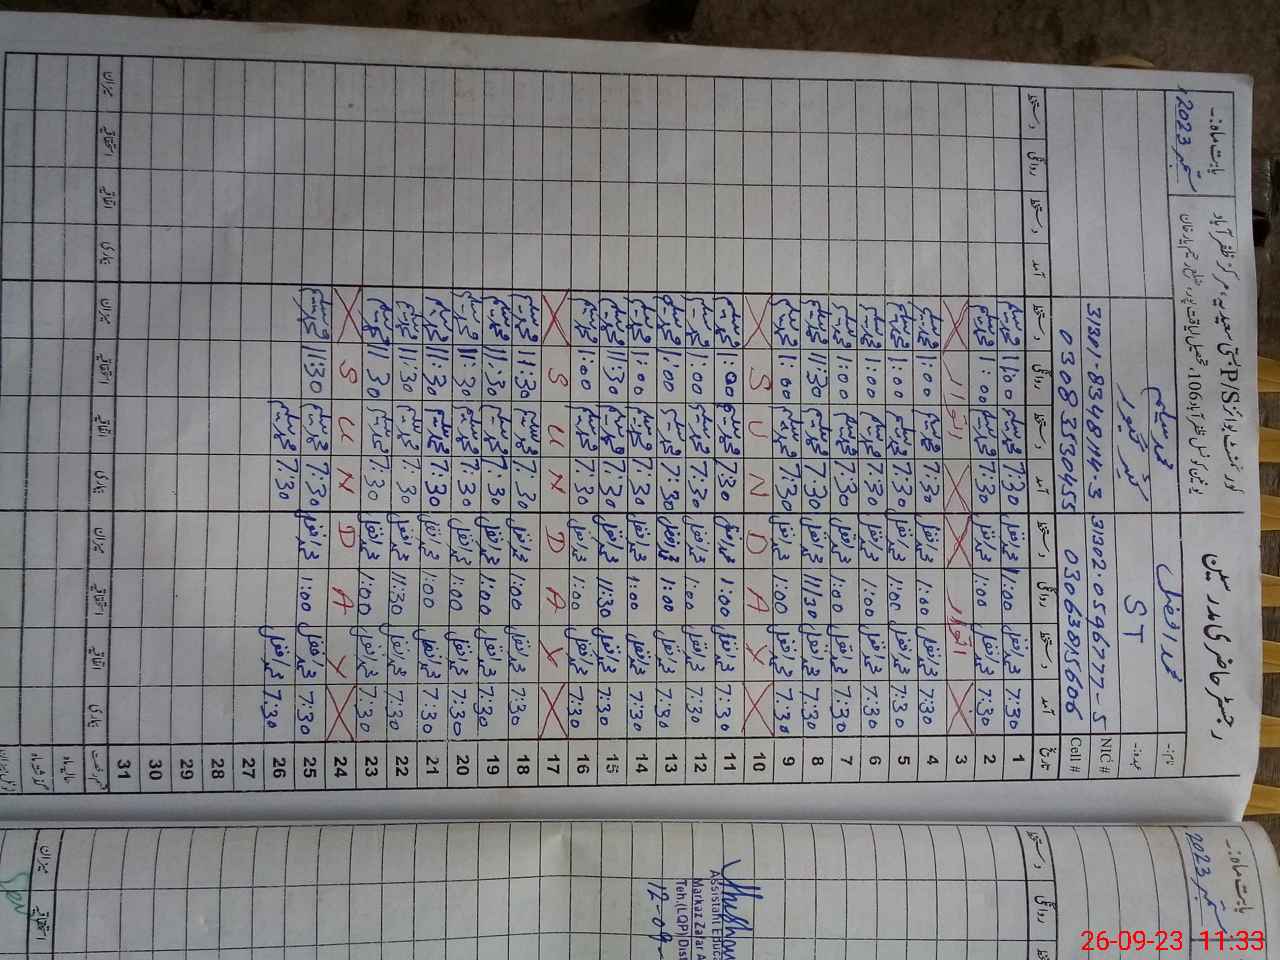 رجسٹر حاضری مدرسین
بابت ماہ:۔ ستمبر 2023ء
نام:۔ محمد افضل محمد سلیم
عہدہ:۔ ST
NIC # 31302-0596777-5 31301-8348114-3
Cell # 03063815606 03083530455
تاریخ آمد دستخط روانگی دستخط آمد دستخط روانگی دستخط آمد دستخط روانگی دستخط
1 7:30 محمد افضل 1:00 محمد افضل 7:30 محمد سلیم 1:00 محمد سلیم
2 7:30 محمد افضل 1:00 محمد افضل 7:30 محمد سلیم 1:00 محمد سلیم
3 اتوار اتوار
4 7:30 محمد افضل 1:00 محمد افضل 7:30 محمد سلیم 1:00 محمد سلیم
5 7:30 محمد افضل 1:00 محمد افضل 7:30 محمد سلیم 1:00 محمد سلیم
6 7:30 محمد افضل 1:00 محمد افضل 7:30 محمد سلیم 1:00 محمد سلیم
7 7:30 محمد افضل 1:00 محمد افضل 7:30 محمد سلیم 1:00 محمد سلیم
8 7:30 محمد افضل 11:30 محمد افضل 7:30 محمد سلیم 11:30 محمد سلیم
9 7:30 محمد افضل 1:00 محمد افضل 7:30 محمد سلیم 1:00 محمد سلیم
10 S U N D A Y
11 7:30 محمد افضل 1:00 محمد افضل 7:30 محمد سلیم 1:00 محمد سلیم
12 7:30 محمد افضل 1:00 محمد افضل 7:30 محمد سلیم 1:00 محمد سلیم
13 7:30 محمد افضل 1:00 محمد افضل 7:30 محمد سلیم 1:00 محمد سلیم
14 7:30 محمد افضل 1:00 محمد افضل 7:30 محمد سلیم 1:00 محمد سلیم
15 7:30 محمد افضل 11:30 محمد افضل 7:30 محمد سلیم 11:30 محمد سلیم
16 7:30 محمد افضل 1:00 محمد افضل 7:30 محمد سلیم 1:00 محمد سلیم
17 S U N D A Y
18 7:30 محمد افضل 1:00 محمد افضل 7:30 محمد سلیم 11:30 محمد سلیم
19 7:30 محمد افضل 1:00 محمد افضل 7:30 محمد سلیم 11:30 محمد سلیم
20 7:30 محمد افضل 1:00 محمد افضل 7:30 محمد سلیم 11:30 محمد سلیم
21 7:30 محمد افضل 1:00 محمد افضل 7:30 محمد سلیم 11:30 محمد سلیم
22 7:30 محمد افضل 11:30 محمد افضل 7:30 محمد سلیم 11:30 محمد سلیم
23 7:30 محمد افضل 1:00 محمد افضل 7:30 محمد سلیم 11:30 محمد سلیم
24 S U N D A Y
25 7:30 محمد افضل 1:00 محمد افضل 7:30 محمد سلیم 11:30 محمد سلیم
26 7:30 محمد افضل 7:30 محمد سلیم
27
28
29
30
31
بابت ماہ:۔ ستمبر 2023
دستخط روانگی
Assistant Educa
Markaz Zafar A
Teh.(LQP)Dist
12-09-
میزان استحقاقیہ
26-09-23 11:33